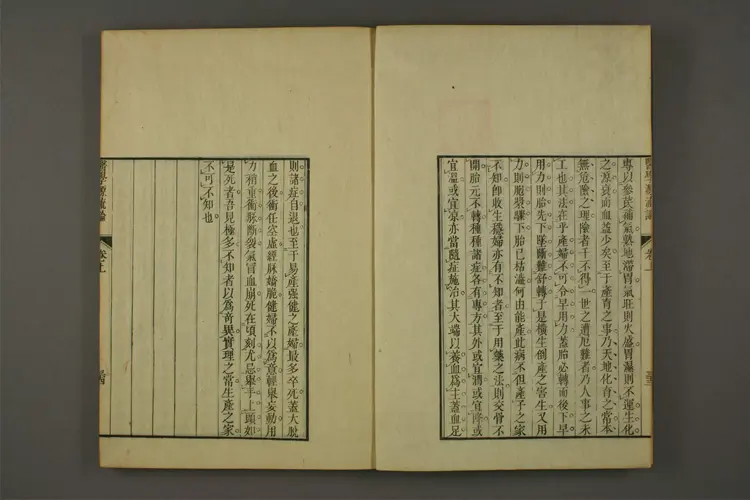 專以參芪補氣熟地滯胃氣旺則火盛胃濕則不運生化
之源衰而血益少矣至于產育之事乃天地化育之常本
無危險之理險者千不得一世之遭厄難者乃人事之未
工也其法在乎產婦不可令早用力蓋胎必轉而後下早
用力則胎先下墜斷難舒轉于是橫生倒產之害生又用
力則胞漿驟下胎已枯澁何由能產此病不但產子之家
不知卽收生穩婦亦有不知者至于用藥之法則交骨不
開胎元不轉種種諸症各有專方其外或宜潤或宜降或
宜溫或宜凉亦當隨症施治其大端以養血爲主蓋血足
則諸症自退也至于易產强健之產婦最多卒死蓋大脫
血之後衝任空虛經脉嬌脆健婦不以爲意輕舉妄動用
力稍重衝脉斷裂氣冒血崩死在頃刻尤忌舉手上頭如
是死者吾見極多不知者以爲奇異實理之常生產之家
不可不知也
醫學源流論
卷上